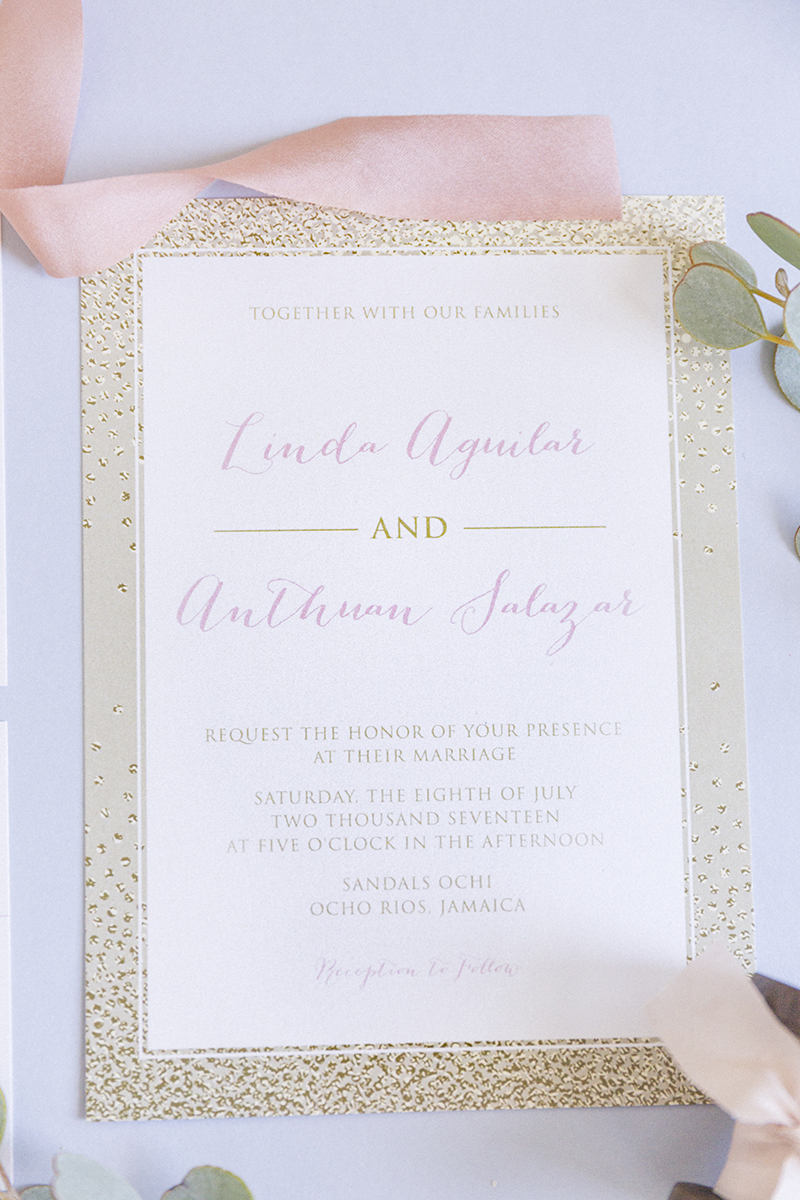 TOGETHER WITH OUR FAMILIES
Linda Aguilar
AND
Anthuan Salazar
REQUEST THE HONOR OF YOUR PRESENCE
AT THEIR MARRIAGE
SATURDAY, THE EIGHTH OF JULY
TWO THOUSAND SEVENTEEN
AT FIVE O'CLOCK IN THE AFTERNOON
SANDALS OCHI
OCHO RIOS, JAMAICA
Reception to Follow